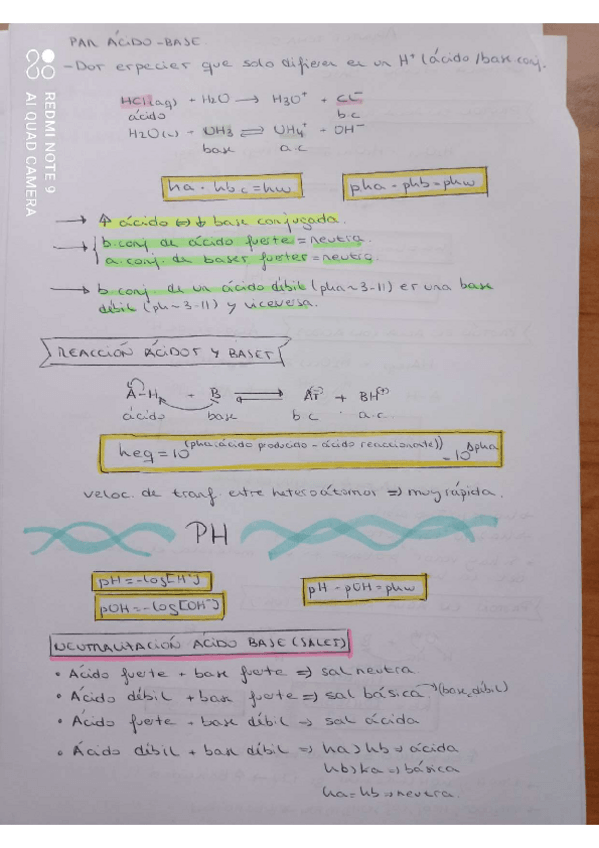 PAR ÁCIDO-BASE
- Dos especies que solo difieren en un H⁺ (ácido/base conj.
HCl(aq) + H2O → H3O⁺ + Cl⁻
ácido b c
H2O(l) + NH3 ⇌ NH4⁺ + OH⁻
base a.c
ka · kbc = kw
pka - pkb = pkw
→ ↑ ácido ⇔ ↓ base conjugada.
→ { b.conj de ácido fuerte = neutra.
a.conj. de bases fuertes = neutra.
→ b.conj. de un ácido débil (pka~3-11) es una base
débil (pk~3-11) y viceversa.
REACCIÓN ÁCIDOS Y BASES
A-H + B ⇌ A:⁽⁻⁾ + BH⁽⁺⁾
ácido base b c a.c.
keq = 10^(pka:ácido producido - ácido reaccionante)) = 10^Δpka
veloc. de transf. entre heteroátomos ⇒ muy rápida.
PH
pH = -log[H⁺]
pOH = -log[OH⁻]
pH - pOH = pkw
NEUTRALIZACIÓN ÁCIDO BASE (SALES)
• Ácido fuerte + base fuerte ⇒ sal neutra.
• Ácido débil + base fuerte ⇒ sal básica → (base débil)
• Ácido fuerte + base débil → sal ácida
• Ácido débil + base débil ⇒ ka > kb → ácida
kb > ka ⇒ básica
ka = kb → neutra.
REDMI NOTE 9
AI QUAD CAMERA